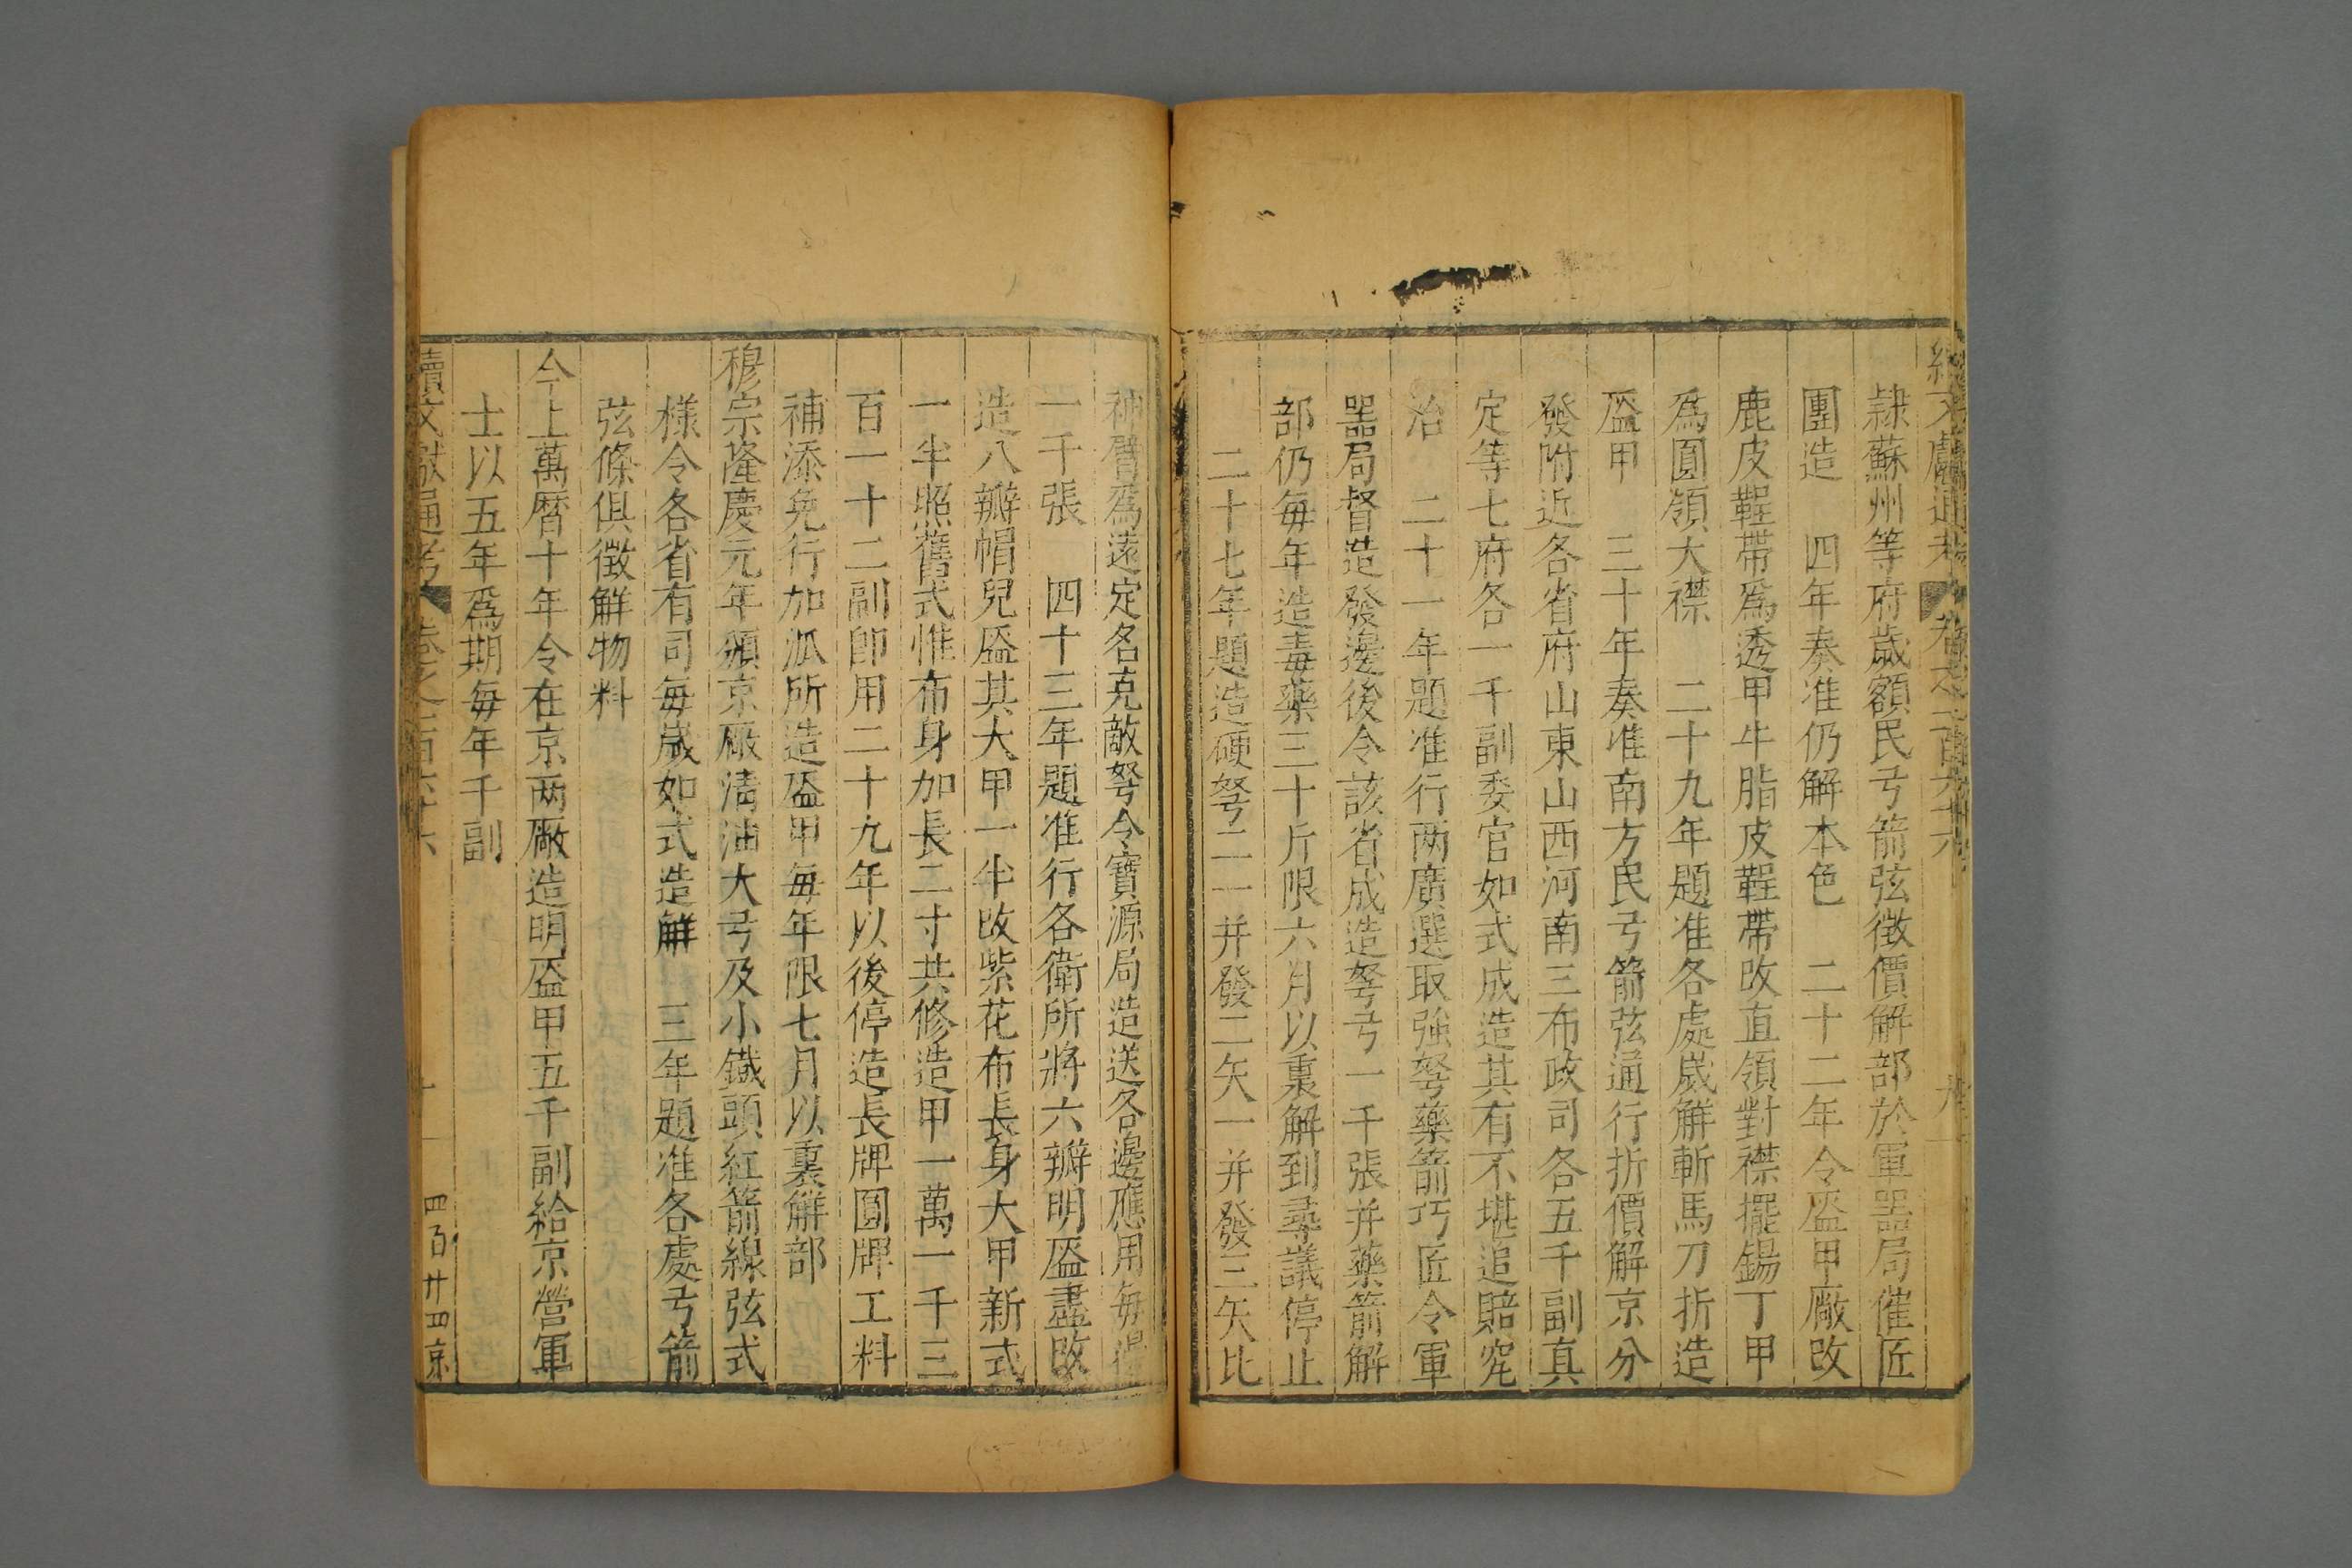 續文獻通考 卷之一百六十六 九
隸蘇州等府歲額民弓箭弦徵價解部於軍噐局催匠
團造　四年奏准仍解本色　二十二年令盔甲廠改
鹿皮鞓帶爲透甲牛脂皮鞓帶改直領對襟擺錫丁甲
爲圓領大襟　二十九年題准各處歲解斬馬刀折造
盔甲　三十年奏准南方民弓箭弦通行折價解京分
發附近各省府山東山西河南三布政司各五千副真
定等七府各一千副委官如式成造其有不堪追賠究
治　二十一年題准行两廣選取強弩藥箭巧匠令軍
噐局督造發邊後令該省成造弩弓一千張并藥箭解
部仍每年造毒藥三十斤限六月以裏解到尋議停止
二十七年題造硬弩二一并發二矢一并發三矢比
神臂爲遠定名克敵弩令寶源局造送各邊應用每邊
一千張　四十三年題准行各衛所將六瓣明盔盡改
造八瓣帽兒盔其大甲一半改紫花布長身大甲新式
一半照舊式惟布身加長二寸共修造甲一萬一千三
百一十二副卽用二十九年以後停造長牌圓牌工料
補添免行加泒所造盔甲每年限七月以裏解部
穆宗隆慶元年頒京厰清油大弓及小鐵頭紅箭線弦式
樣令各省有司每歲如式造解　三年題准各處弓箭
弦條俱徵解物料
今上萬曆十年令在京两厰造明盔甲五千副給京營軍
士以五年爲期每年千副
續文獻通考 卷之一百六十六 十 四百廿四 京